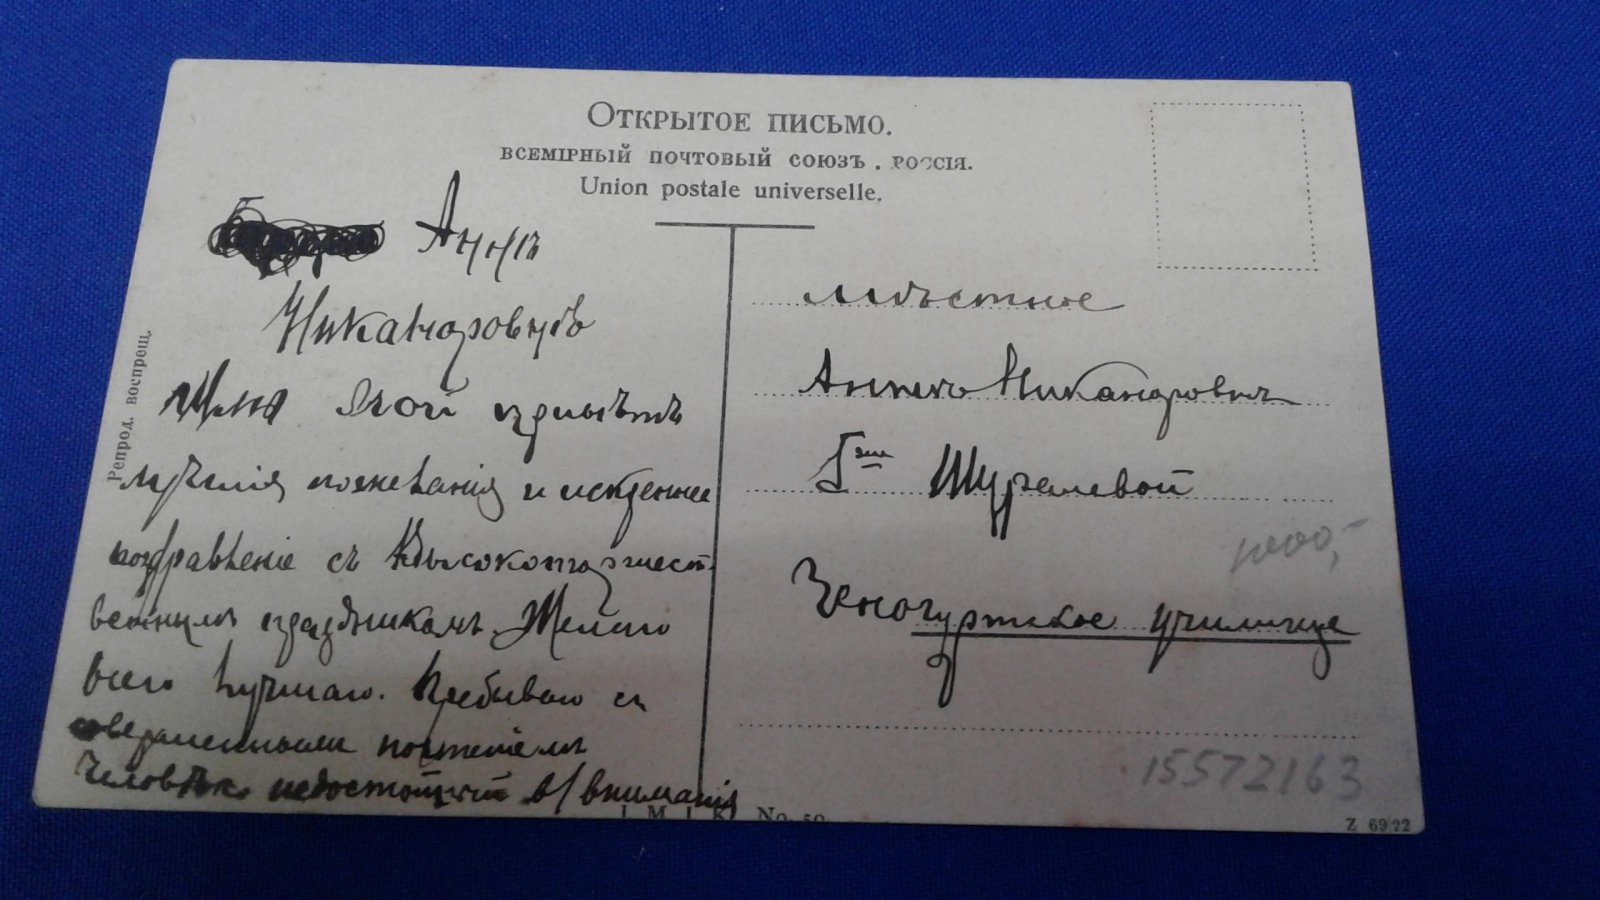 Открытое письмо.
ВСЕМІРНЫЙ ПОЧТОВЫЙ СОЮЗЪ. РОССІЯ.
Union postale universelle.
Аннѣ
Никаноровнѣ
Шлю мой привѣтъ
лучшія пожеланія и искреннее
поздравленіе съ Высокоторжест-
веннымъ праздникамъ. Желаю
всего лучшаго. Пребываю съ
совершеннымъ почтеніемъ
Человѣкъ недостойный в/ вниманія
Мѣстное
Аннѣ Никаноровнѣ
Училище
Репрод. воспрощ.
15572163
I M I K No. 50
Z 6922